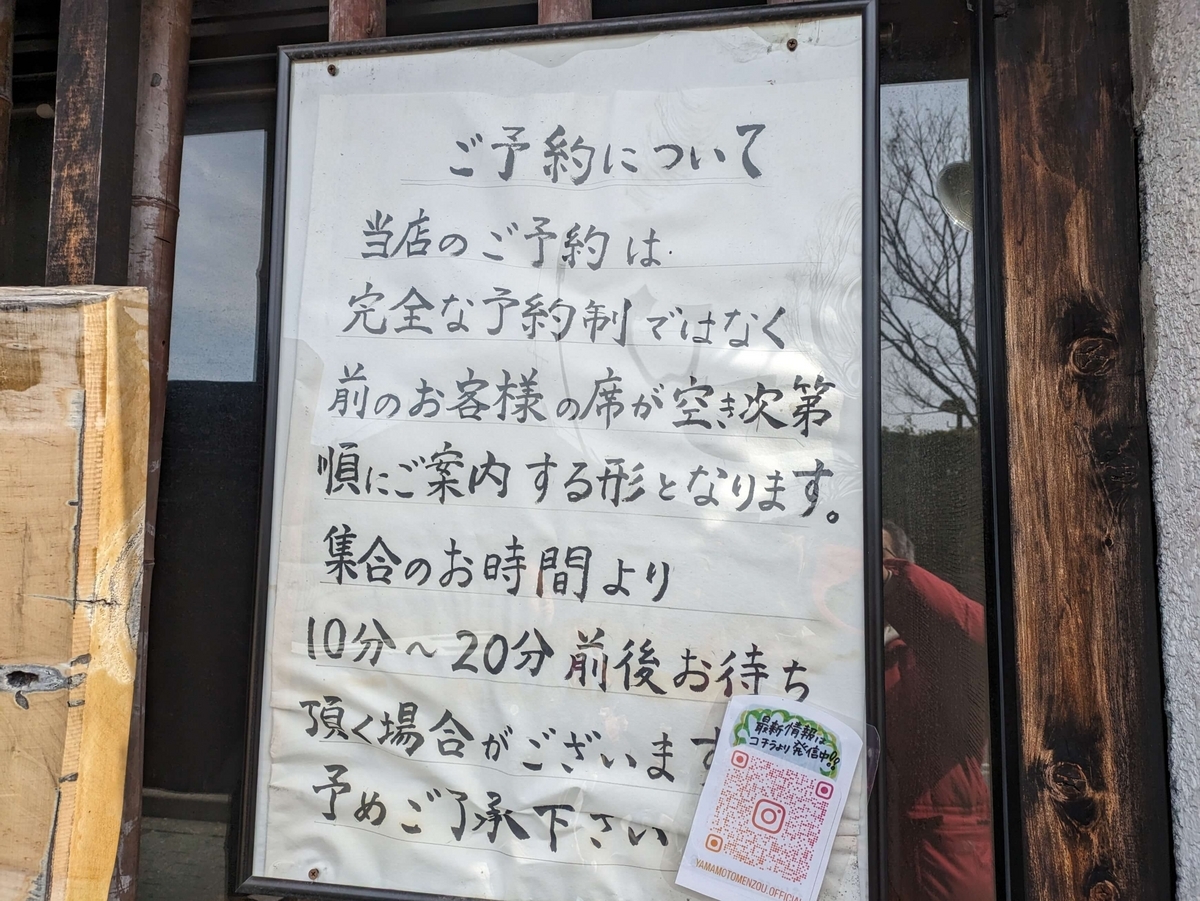 ご予約について
当店のご予約は
完全な予約制ではなく
前のお客様の席が空き次第
順にご案内する形となります。
集合のお時間より
10分～20分前後お待ち
頂く場合がございます
予めご了承下さい
最新情報は
コチラより発信中!!
YAMAMOTOMENZOU.OFFICIAL